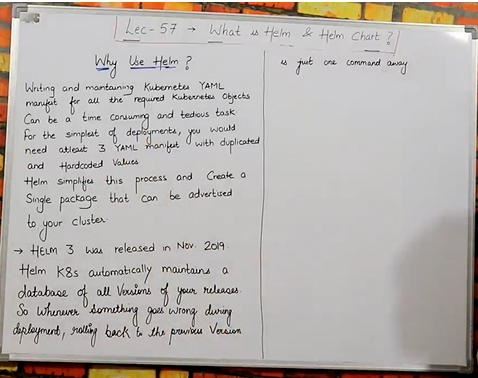 Lec-57 → What is Helm & Helm Chart?
Why Use Helm?
Writing and maintaining Kubernetes YAML
manifest for all the required Kubernetes Objects
Can be a time consuming and tedious task
For the simplest of deployments, you would
need atleast 3 YAML manifest with duplicated
and Hardcoded Values
Helm simplifies this process and Create a
Single package that can be advertised
to your cluster.
→ HELM 3 was released in Nov. 2019.
Helm K8s automatically maintains a
database of all Versions of your releases.
So Whenever something goes wrong during
deployment, rolling back to the previous Version
is just one command away